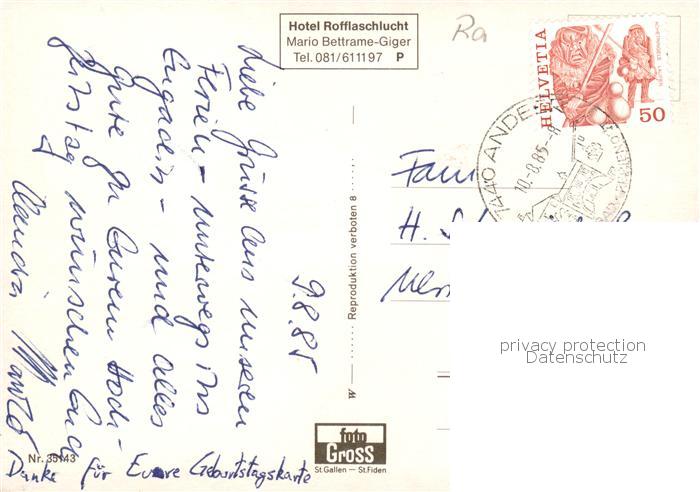 Hotel Rofflaschlucht
Mario Bettrame-Giger
Tel. 081/611197 P
Ra
HELVETIA
50
7440 ANDE
10.-8.85-
9.8.85
Liebe Grüsse aus unseren
Ferien - unterwegs ins
Engadin - und alles
Gute zu Eurem Hoch-
zeitstag wünschen Euch
Claudia
Danke für Euere Geburtstagskarte
Reproduktion verboten 8
Fam
H.
Nr. 35143
foto
GROSS
St.Gallen — St.Fiden
privacy protection
Datenschutz